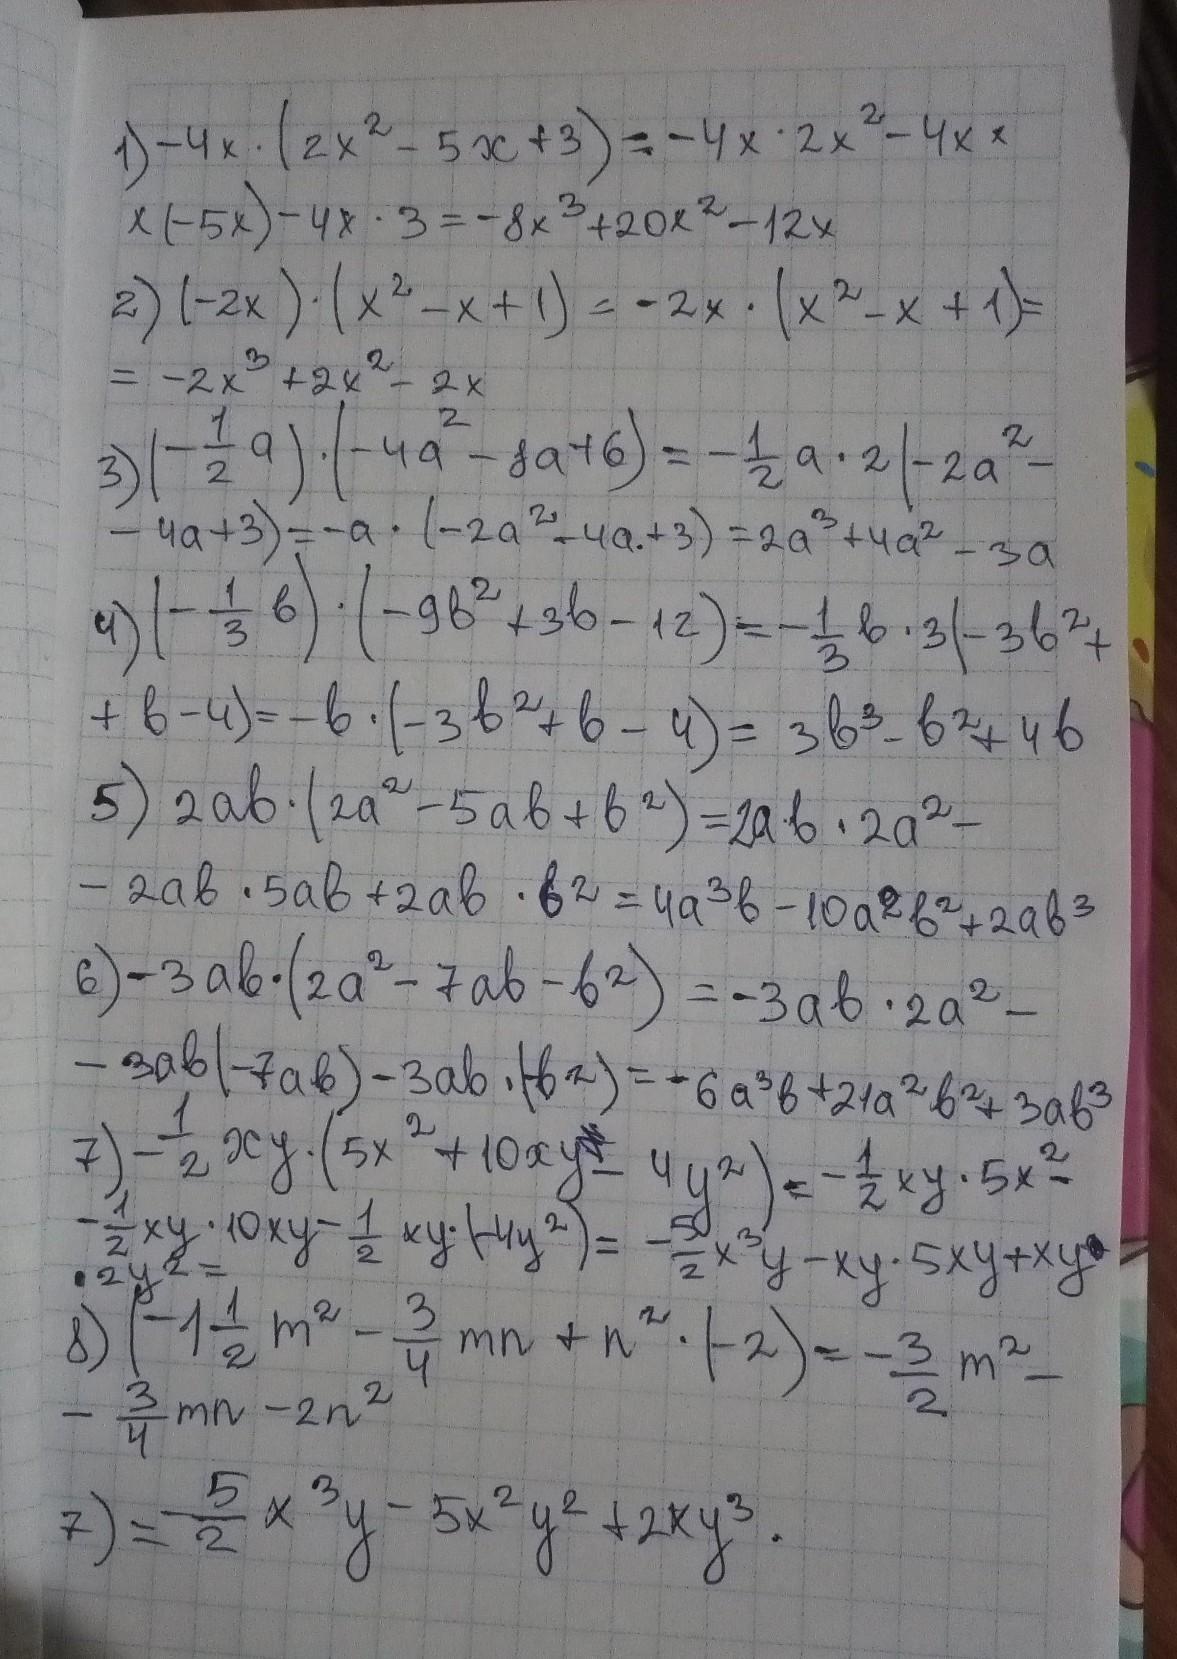 1) -4x · (2x² - 5x + 3) = -4x · 2x² - 4x ×
× (-5x) - 4x · 3 = -8x³ + 20x² - 12x
2) (-2x) · (x² - x + 1) = -2x · (x² - x + 1) =
= -2x³ + 2x² - 2x
3) (-1/2 a) · (-4a² - 8a + 6) = -1/2 a · 2 (-2a² -
- 4a + 3) = -a · (-2a² - 4a + 3) = 2a³ + 4a² - 3a
4) (-1/3 b) · (-9b² + 3b - 12) = -1/3 b · 3 (-3b² +
+ b - 4) = -b · (-3b² + b - 4) = 3b³ - b² + 4b
5) 2ab · (2a² - 5ab + b²) = 2ab · 2a² -
- 2ab · 5ab + 2ab · b² = 4a³b - 10a²b² + 2ab³
6) -3ab · (2a² - 7ab - b²) = -3ab · 2a² -
- 3ab (-7ab) - 3ab · (-b²) = -6a³b + 21a²b² + 3ab³
7) -1/2 xy · (5x² + 10xy - 4y²) = -1/2 xy · 5x² -
- 1/2 xy · 10xy - 1/2 xy · (-4y²) = -5/2 x³y - xy · 5xy + xy ·
· 2y² =
8) (-1 1/2 m² - 3/4 mn + n² · (-2) ) = -3/2 m² -
- 3/4 mn - 2n²
7) = -5/2 x³y - 5x²y² + 2xy³.